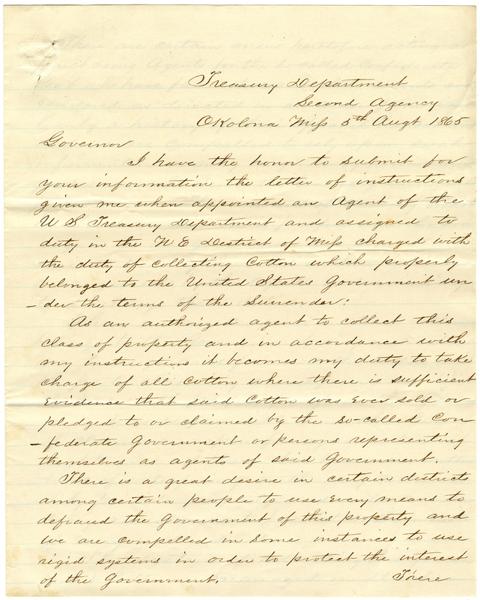 Treasury Department
Second Agency
Okolona Miss 5th Augt 1865
Governor
I have the honor to submit for
your information the letter of instructions
given me when appointed an Agent of the
U S Treasury Department and assigned to
duty in the N E District of Miss charged with
the duty of collecting Cotton which properly
belonged to the United States Government un-
-der the terms of the Surrender:
As an authorized agent to collect this
class of property and in accordance with
my instructions it becomes my duty to take
charge of all Cotton where there is sufficient
Evidence that said Cotton was Ever sold or
pledged to or claimed by the so-called Con-
-federate Government or persons representing
themselves as agents of said Government.
There is a great desire in certain districts
among certain people to use Every means to
defraud the Government of this property and
we are compelled in some instances to use
rigid systems in order to protect the interest
of the Government. There